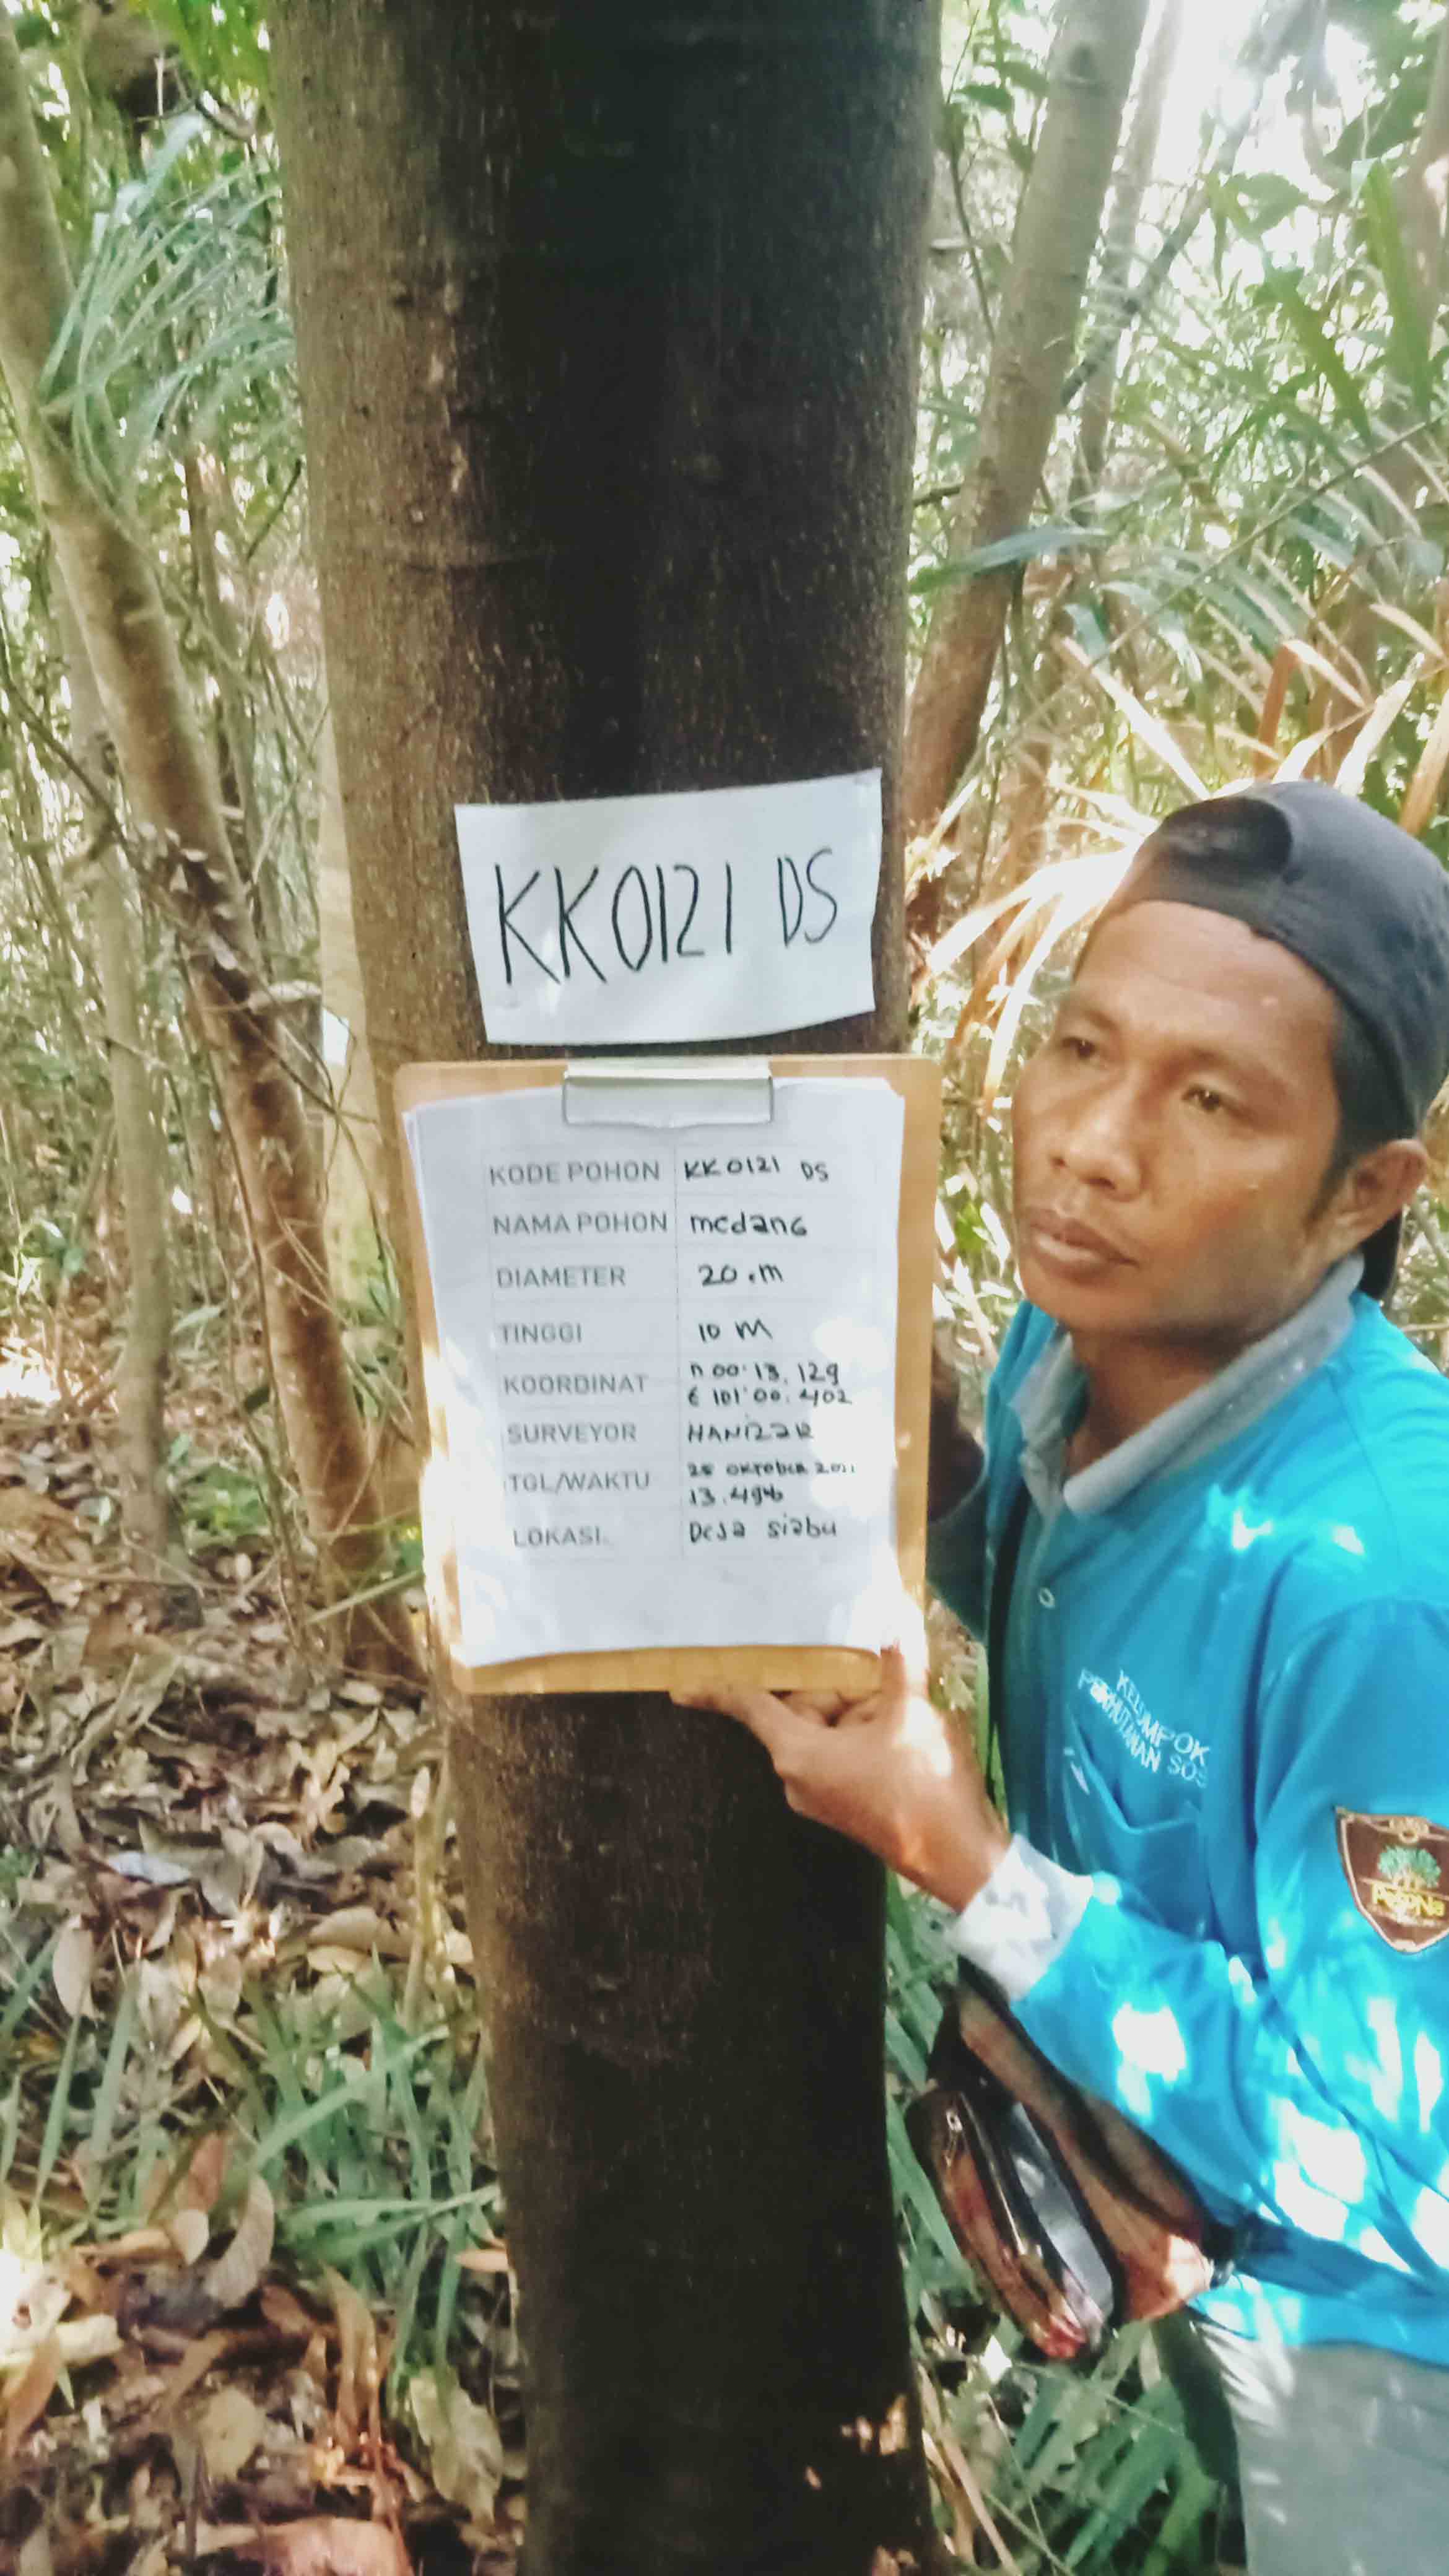 KK0121 DS
KODE POHON KK0121 DS
NAMA POHON medang
DIAMETER 20.m
TINGGI 10 m
KOORDINAT n 00'13.129
E 101'00.402
SURVEYOR HANIZAR
TGL/WAKTU oktober
LOKASI. Desa siabu
KELOMPOK
PERHUTANAN SOS